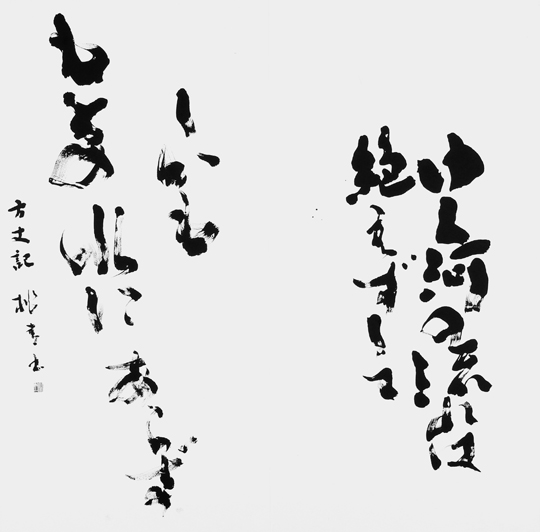 ゆく河の流れは
絶えずして
しかも
もとの水にあらず
方丈記